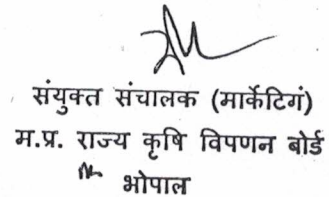 संयुक्त संचालक (मार्केटिगं)
म.प्र. राज्य कृषि विपणन बोर्ड
भोपाल